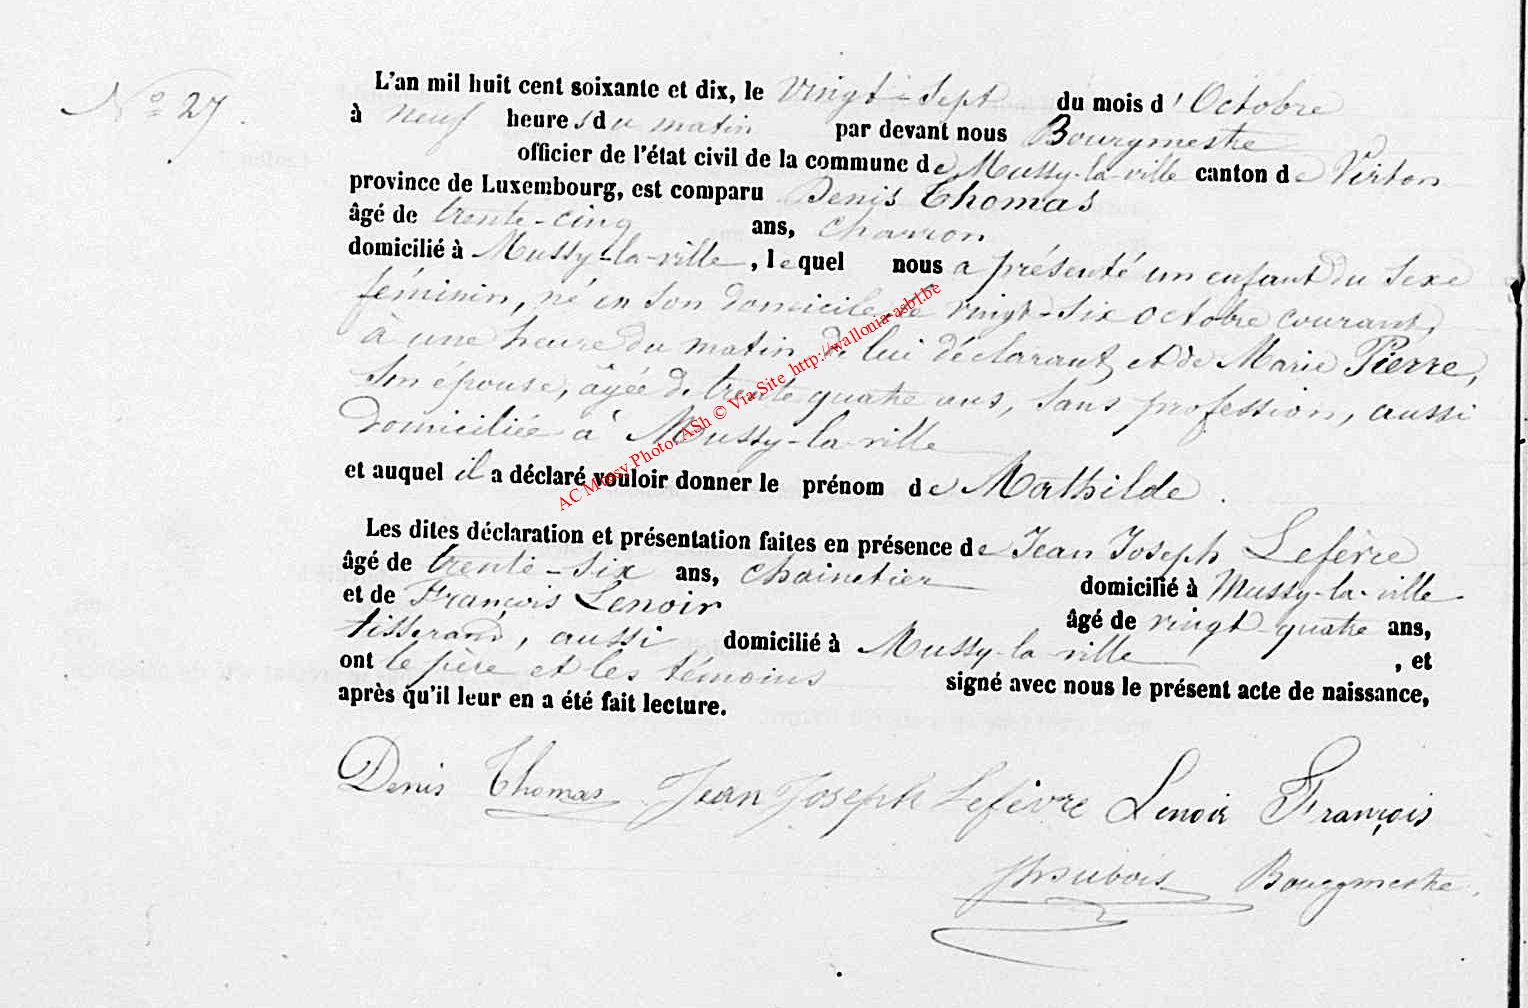 N° 27.
L'an mil huit cent soixante et dix, le vingt-sept du mois d'Octobre
à neuf heures du matin par devant nous Bourgmestre
officier de l'état civil de la commune de Mussy-la-ville canton de Virton
province de Luxembourg, est comparu Denis Thomas
âgé de trente-cinq ans, charron
domicilié à Mussy-la-ville, lequel nous a présenté un enfant du sexe
féminin, né en son domicile le vingt-six octobre courant,
à une heure du matin de lui déclarant et de Marie Pierre,
son épouse, âgée de trente quatre ans, sans profession, aussi
domiciliée à Mussy-la-ville
et auquel il a déclaré vouloir donner le prénom de Mathilde.
Les dites déclaration et présentation faites en présence de Jean Joseph Lefèvre
âgé de trente-six ans, chainetier domicilié à Mussy-la-ville
et de François Lenoir âgé de vingt-quatre ans,
tisserand, aussi domicilié à Mussy-la-ville, et
ont le père et les témoins signé avec nous le présent acte de naissance,
après qu'il leur en a été fait lecture.
Denis Thomas Jean Joseph Lefèvre Lenoir François
Dubois Bourgmestre.
AC Mussy Photo: ASh © Via Site http://wallonia-asbl.be